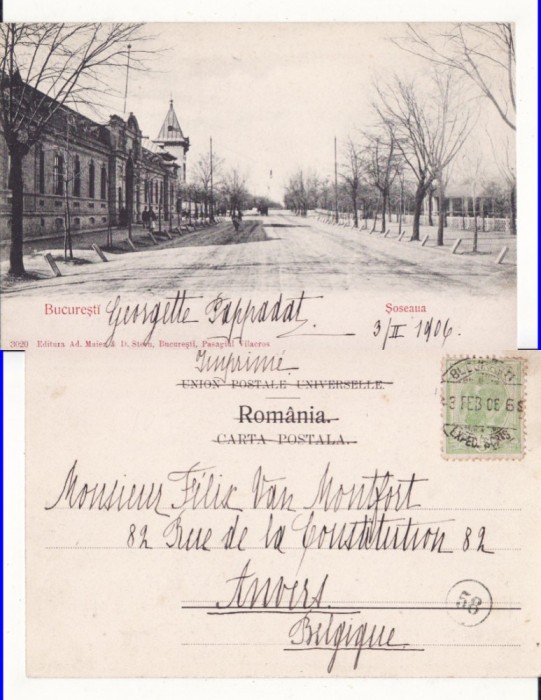 București
Georgette Pappadat.
Șoseaua
3/II 1906.
3020 Editura Ad. Maier & D. Stern, București, Pasagiul Vilacros
Imprimé.
UNION POSTALE UNIVERSELLE.
România.
CARTA POSTALA.
3 FEB 06
Monsieur Félix Van Montfort
82 Rue de la Constitution 82
Anvers.
58
Belgique.